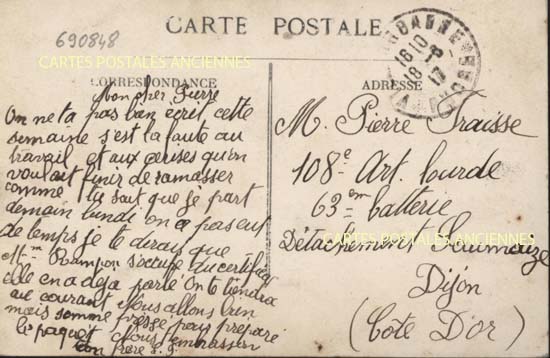 CARTE POSTALE
690848
CARTES POSTALES ANCIENNES
CORRESPONDANCE
ADRESSE
AUBAGNE
18-10
18-6
17
Mon cher Pierre
On ne ta pas ban ecrit cette
semaine s'est la faute au
travail et aux cerises qu'on
voulait finir de ramasser
comme tu sait que je part
demain lundi on a pas eut
de temps je te dirais que
Mme s'occupe du certificat
elle en a deja parlé On te tiendra
au courant Nous allons bien
mais somme pressé pour preparé
le paquet Nous t'embrasson
ton frere
M. Pierre Fraisse
108e Art. lourde
63em batterie
Détachement Saumaize
CARTES POSTALES ANCIENNES
Dijon
(Côte D'or)